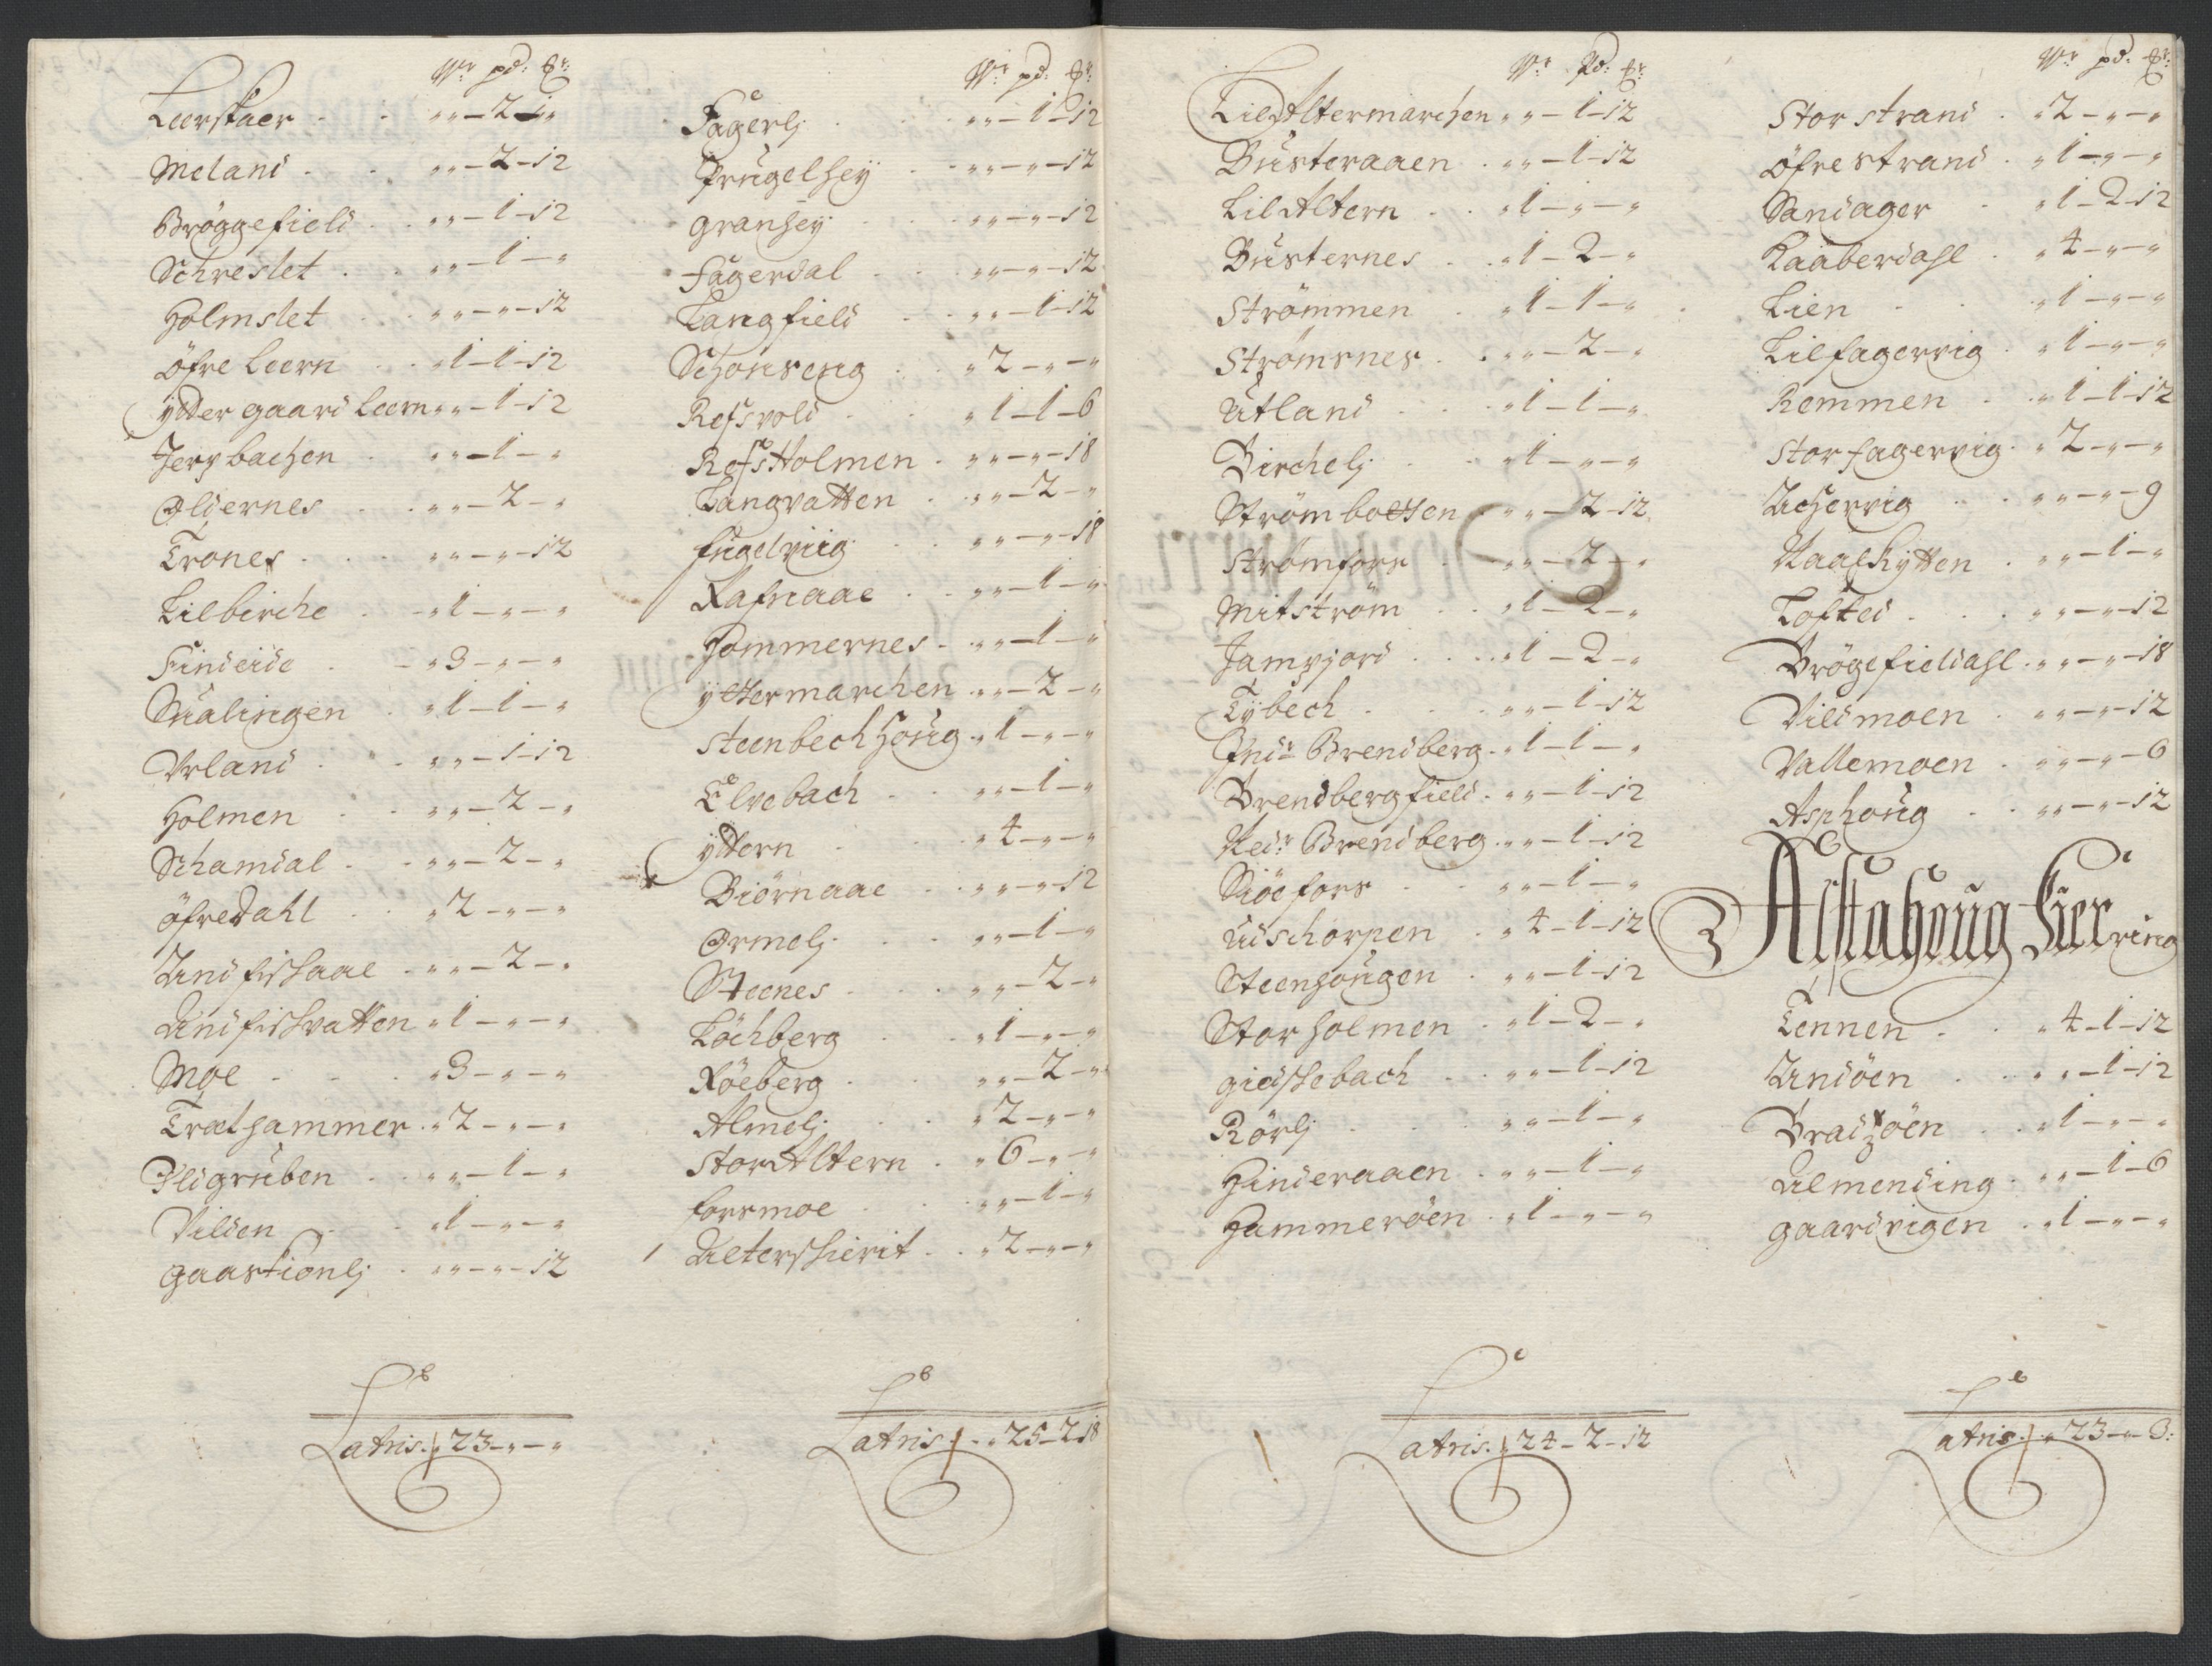 Wr: pd: Er:
Leerskaer . . „ „ – 2 – „
Meland . . „ „ – 2 – 12
Bröggefield . . „ „ – 1 – 12
Schreslet . . „ „ – 1 – „
Holmslet . . „ „ – „ – 12
öfre Leern . . „ 1 – 1 – 12
ytter gaard Leern „ „ – 1 – 12
Jerpbachen . „ „ – 1 – „
Oldernes . . „ „ – 2 – „
Trones . . . „ „ – „ – 12
Lilbirche . „ 1 – „ – „
Findeide . „ 3 – „ – „
Sualingen . „ 1 – 1 – „
Urland . . „ „ – 1 – 12
Holmen . . „ „ – 2 – „
Schamdal . . „ „ – 2 – „
öfreDahl . . „ 2 – „ – „
Undfishaae . „ „ – 2 – „
Undfishvatten „ 1 – „ – „
Moe . . . „ 3 – „ – „
Trælhammer . „ 2 – „ – „
Ildgruben . . „ „ – 1 – „
Vilden . . „ 1 – „ – „
gaastionlj . „ „ – „ – 12
Latris . „ 23 – „ – „
Wr: pd: Er:
Fagerlj . . „ „ – 1 – 12
Prugelhey . . „ „ – „ – 12
granhey . . „ „ – „ – 12
fagerdal . . „ „ – „ – 12
Langfield . . „ „ – 1 – 12
Schonseng . . „ 2 – „ – „
Refsvold . . „ 1 – 1 – 6
RefsHolmen . „ „ – „ – 18
Langvatten . „ „ – 2 – „
fugelviig . . „ „ – „ – 18
Rafnaae . . „ „ – 1 – „
Hommernes . „ „ – 1 – „
yttermarchen . „ „ – 2 – „
steenbechhoug . „ 1 – „ – „
Elvebach . . „ „ – 1 – „
yttern . . „ 4 – „ – „
Biörnaae . . „ „ – „ – 12
Ormelj . . „ „ – 1 – „
Steenes . . „ „ – 2 – „
Löchberg . . „ 1 – „ – „
Röeberg . . „ „ – 2 – „
Almelj . . „ 2 – „ – „
storAltern . „ 6 – „ – „
forsmoe . . „ „ – 1 – „
1 Ulterskierit . „ 2 – „ – „
Latris . „ 25 – 2 – 18
Wr: Pd: Er:
LilAltermarchen „ „ – 1 – 12
Busteraaen . „ „ – 1 – 12
LilAltern . . „ 1 – „ – „
Busternes . . „ 1 – 2 – „
Strömmen . „ 1 – 1 – „
Strömsnes . . „ „ – 2 – „
Utland . . „ 1 – 1 – „
Birchelj . . „ 1 – „ – „
Strömbotten . „ „ – 2 – 12
Strömfors . „ „ – 2 – „
Mitström . . „ 1 – 2 – „
Jamvjord . . „ 1 – 2 – „
Tybech . . „ „ – 1 – 12
Indr Brendberg . „ 1 – 1 – „
Brendbergfield . „ „ – 1 – 12
Nedr Brendberg . „ „ – 1 – 12
Siöefors . . „ „ – 1 – „
Udschorpen . „ 4 – 1 – 12
Steenhougen . „ „ – 1 – 12
Storholmen . „ 1 – 2 – „
gidskebach . . „ „ – 1 – 12
Rörlj . . . „ „ – 1 – „
Hinderaaen . „ „ – 1 – „
Hammeröen . „ 1 – „ – „
Latris . „ 24 – 2 – 12
Wr: pd: Er:
Storstrand . „ 2 – „ – „
öfrestrand . „ 1 – „ – „
Sandager . „ 1 – 2 – 12
Kaaberdahl . „ 4 – „ – „
Lien . . „ 1 – „ – „
Lilfagervig . „ 1 – „ – „
Remmen . . „ 1 – 1 – 12
Storfagervig . „ 2 – „ – „
Uchervig . . „ „ – „ – 9
Naalhytten . „ „ – 1 – „
Lofted . . . „ „ – „ – 12
Brögefieldahl . „ „ – „ – 18
Vildmoen . „ „ – „ – 12
Vallemoen . „ „ – „ – 6
Asphoug . . „ „ – „ – 12
3 Alstahoug Fierring
Tennen . . „ 4 – 1 – 12
Undöen . . „ „ – 1 – 12
Bradzöen . . „ 1 – „ – „
Almending . „ „ – 1 – 6
gaardvigen . „ 1 – „ – „
Latris . „ 23 – „ – 3: